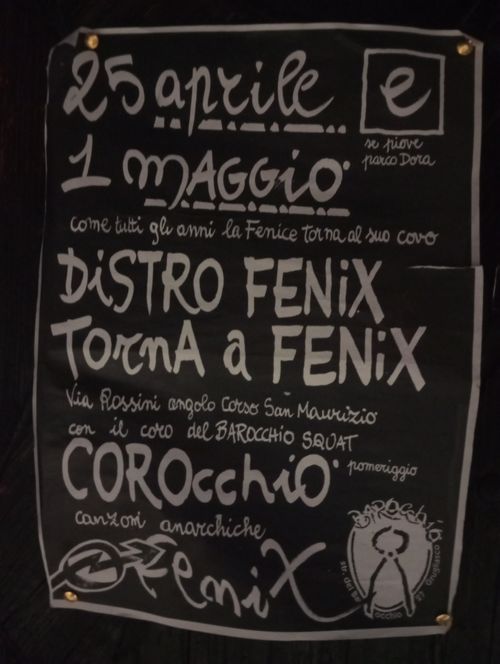 25 aprile e
se piove
parco Dora
1 MAGGiO
come tutti gli anni la Fenice torna al suo covo
DiSTRO FENiX
TornA a FENiX
Via Rossini angolo Corso San Maurizio
con il coro del BAROCCHIO SQUAT
COROcchiO pomeriggio
canzoni anarchiche
feniX
BAROCChio
str. del Barocchio 27 Grugliasco